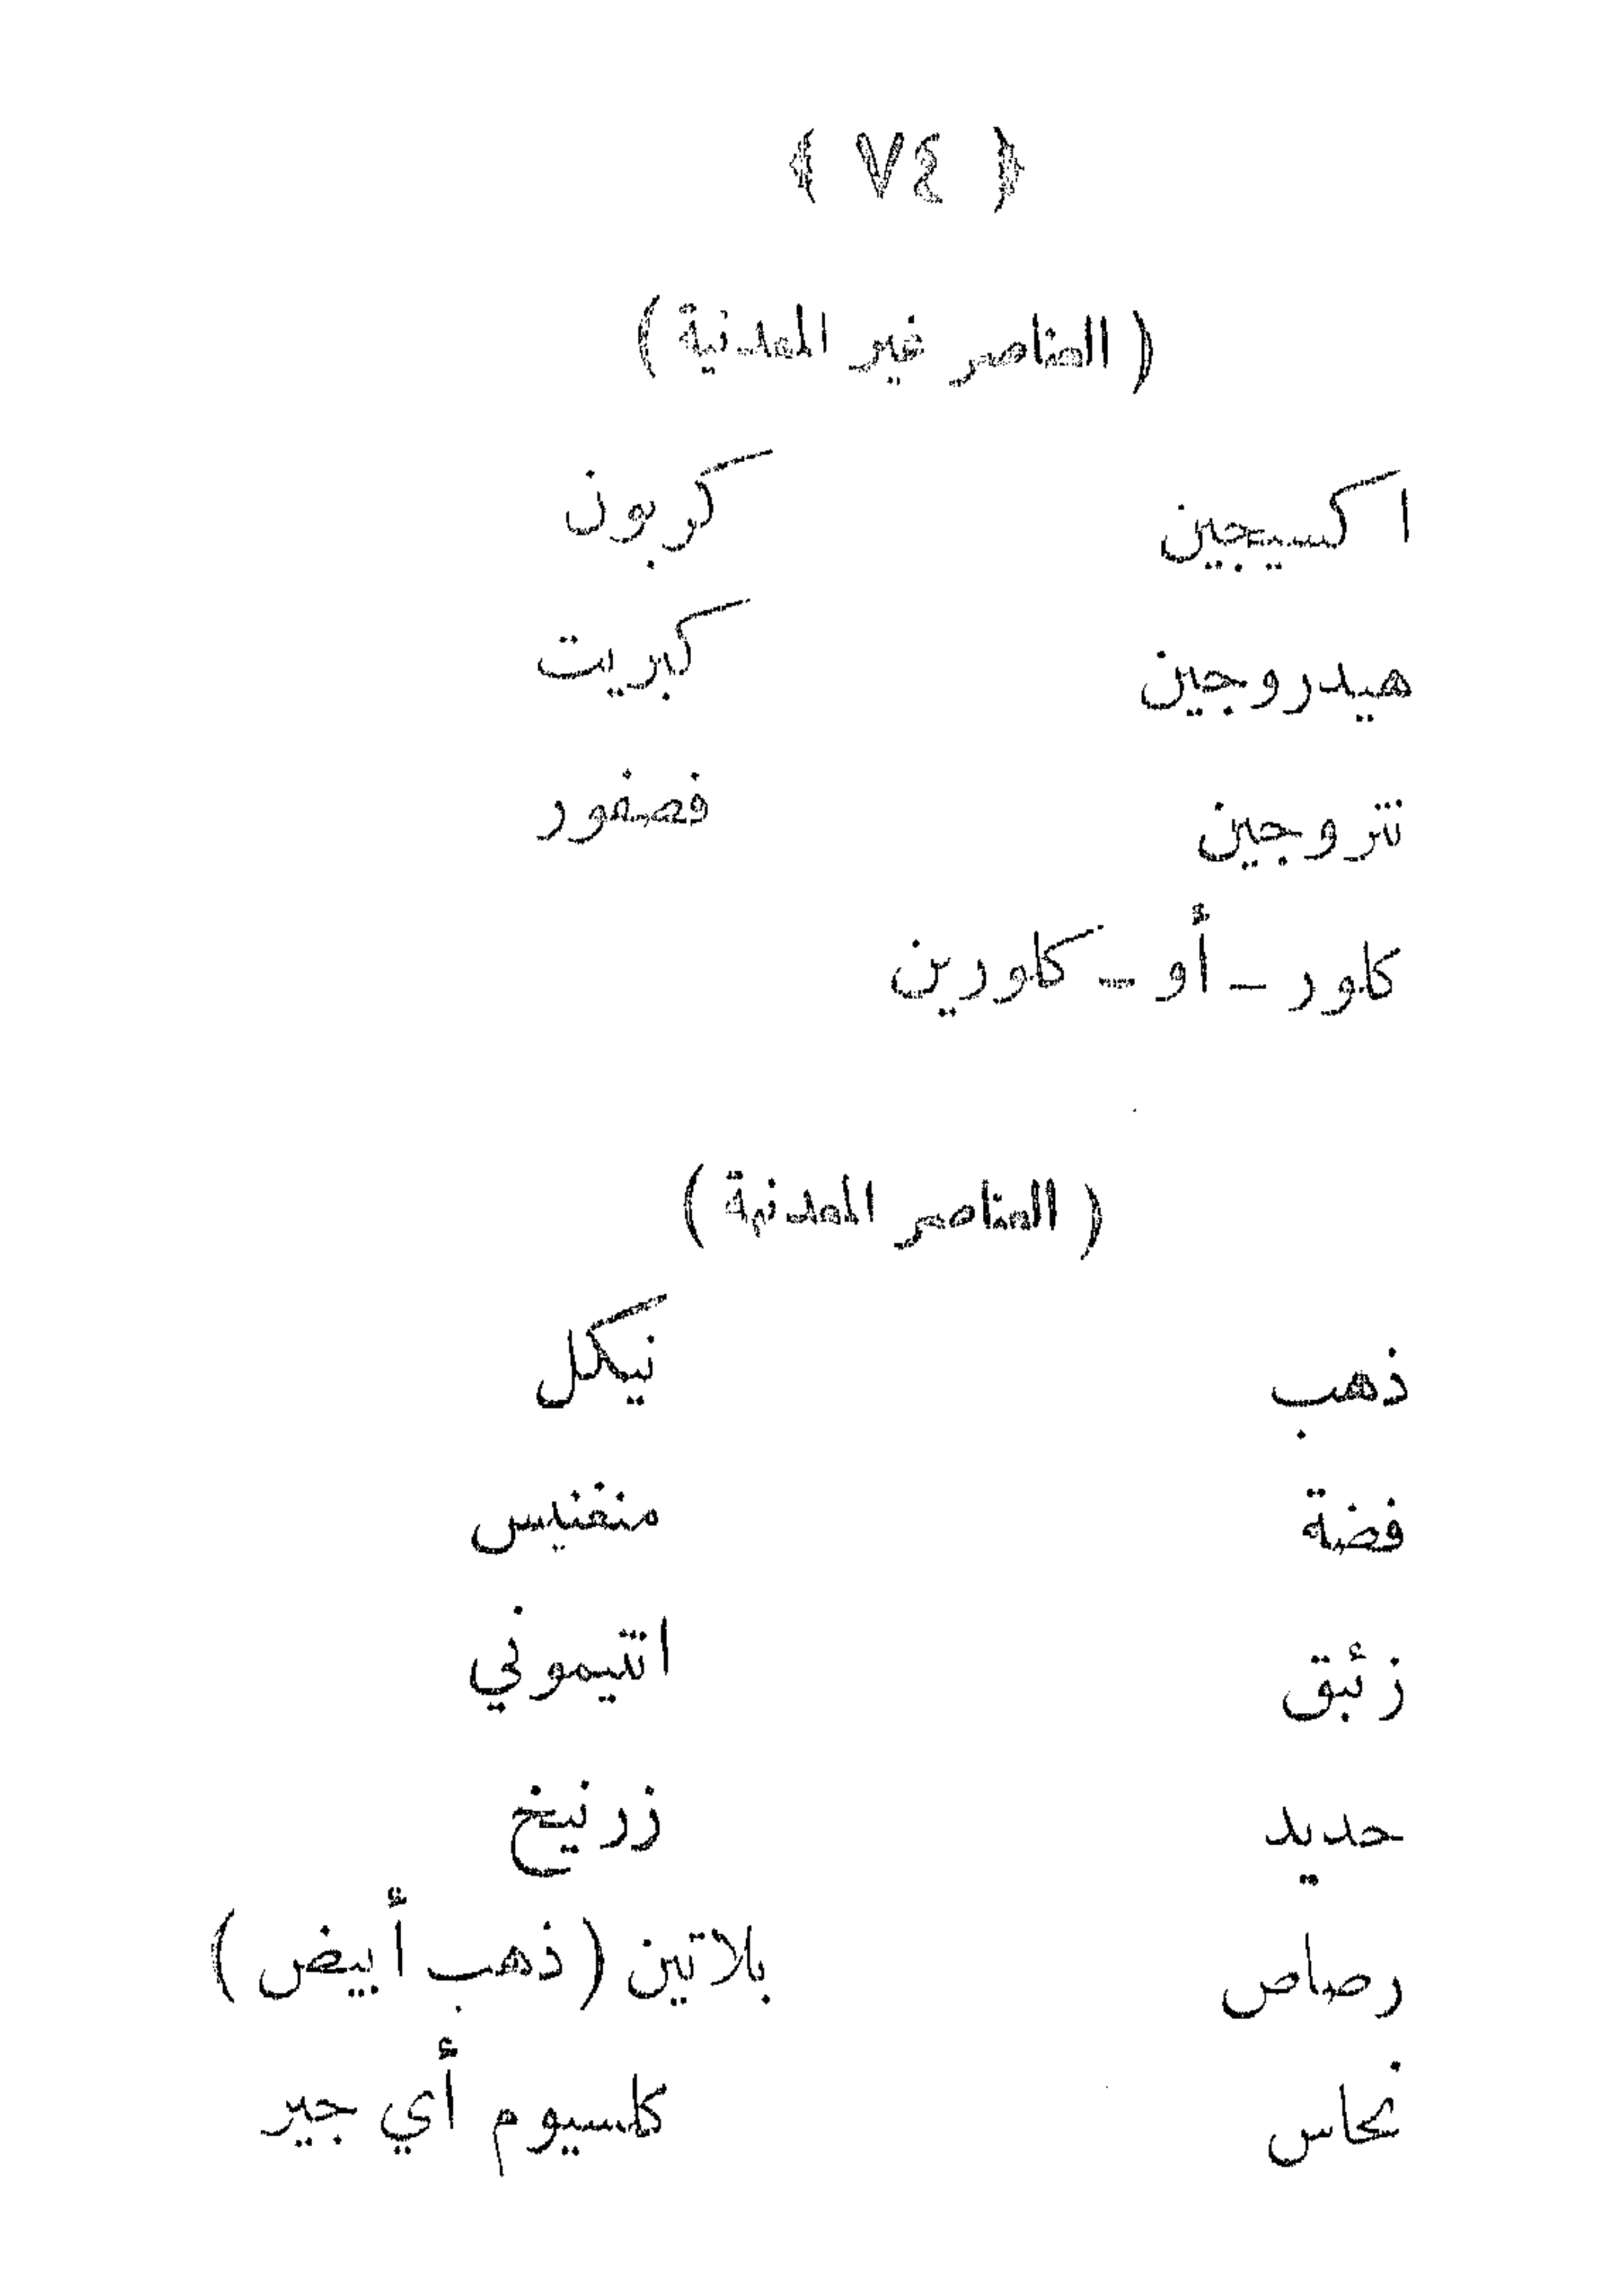 ﴿ ٧٤ ﴾
( العناصر غير المعدنية )
اكسيجين كربون
هيدروجين كبريت
نتروجين فصفور
كلور - أو - كلورين
( العناصر المعدنية )
ذهب نيكل
فضة منغنيس
زئبق انتيموني
حديد زرنيخ
رصاص بلاتين ( ذهب أبيض )
نحاس كلسيوم أي جير